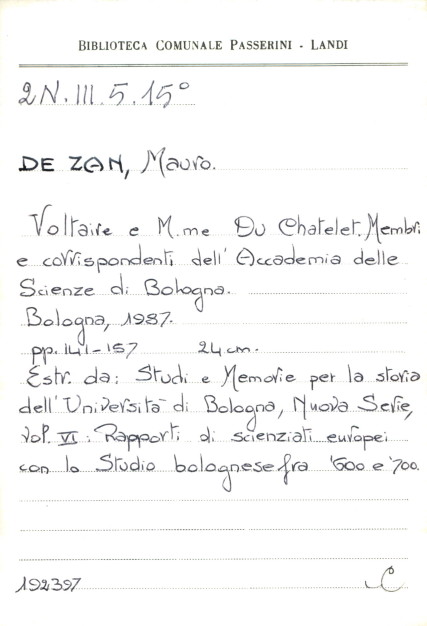 BIBLIOTECA COMUNALE PASSERINI - LANDI
2N.III.5.15°
DE ZAN, Mauro.
Voltaire e M.me Du Chatelet. Membri
e corrispondenti dell'Accademia delle
Scienze di Bologna.
Bologna, 1987.
pp. 141-157 24 cm.
Estr. da: Studi e Memorie per la storia
dell'Università di Bologna, Nuova Serie,
vol. VI: Rapporti di scienziati europei
con lo Studio bolognese fra '600 e '700.
192397